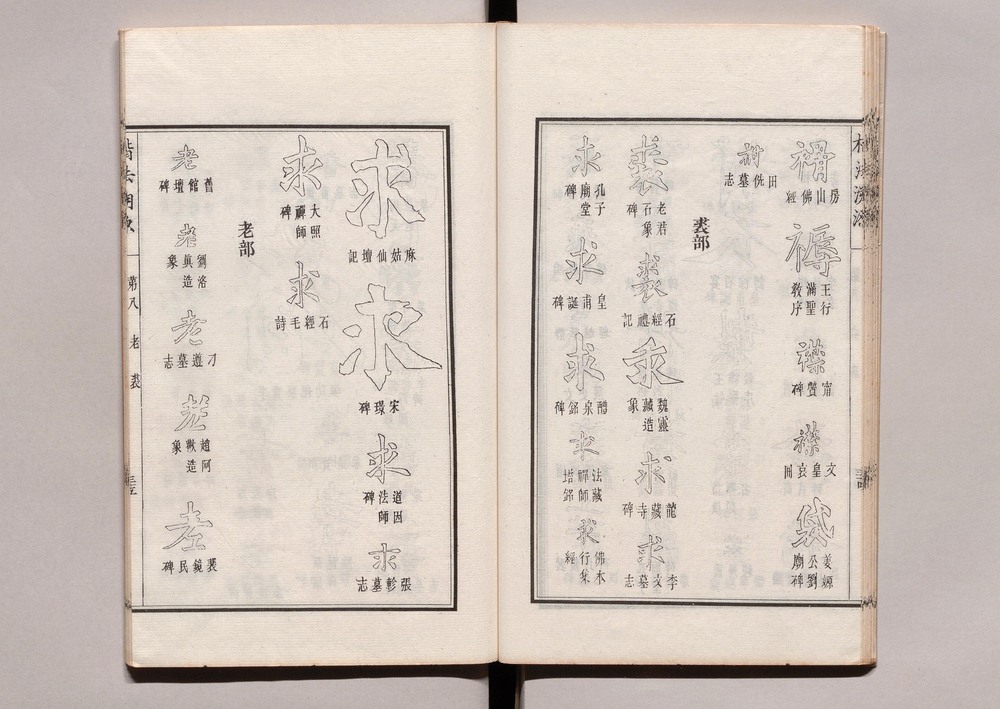 禣
房山佛經
褥
王行滿聖教序
甯贙碑
文皇哀冊
袋
姜嫄公劉廟碑
田侁墓志
裘部
裘
老君石象碑
裘
石經禮記
求
魏靈藏造象
求
龍藏寺碑
求
李文墓志
求
孔子廟堂碑
求
皇甫誕碑
求
醴泉銘
求
法藏禪師塔銘
求
佛本行集經
求
麻姑仙壇記
求
宋璟碑
求
道因法師碑
求
張軫墓志
求
大照禪師碑
求
石經毛詩
老部
老
舊館壇碑
老
劉洛真造象
老
刁遵墓志
老
趙阿歡造象
老
裴鏡民碑
第八 老 裘